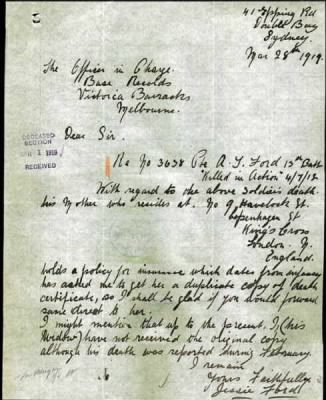 41 Epping Rd
Double Bay
Sydney.
Mar 28th 1919.
The Officer in Charge.
Base Records
Victoria Barracks
Melbourne.
DECEASED
SECTION
APR 1 1919
RECEIVED
Dear Sir.
Re No 3638 Pte A. T. Ford 13th Batt
Killed in Action 4/7/18
With regard to the above Soldiers death.
his Mother who resides at. No 9 Havelock St.
Copenhagen St
King's Cross
London. N.
England.
holds a policy for insurance which dates from infancy
has asked me to get her a duplicate copy of death
certificate, so I shall be glad if you would forward
same direct to her.
I might mention that up to the present. I, (his
Widow) have not received the original copy
although his death was reported during February.
I remain
Yours Faithfully
Jessie Ford